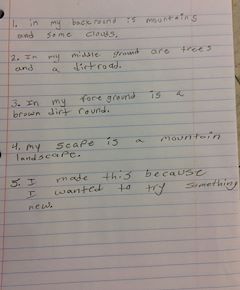 1. in my background is mountains
and some clouds.
2. In my middle ground are trees
and a dirt road.
3. In my fore ground is a
brown dirt round.
4. My scape is a mountain
landscape.
5. I made this because
I wanted to try something
new.